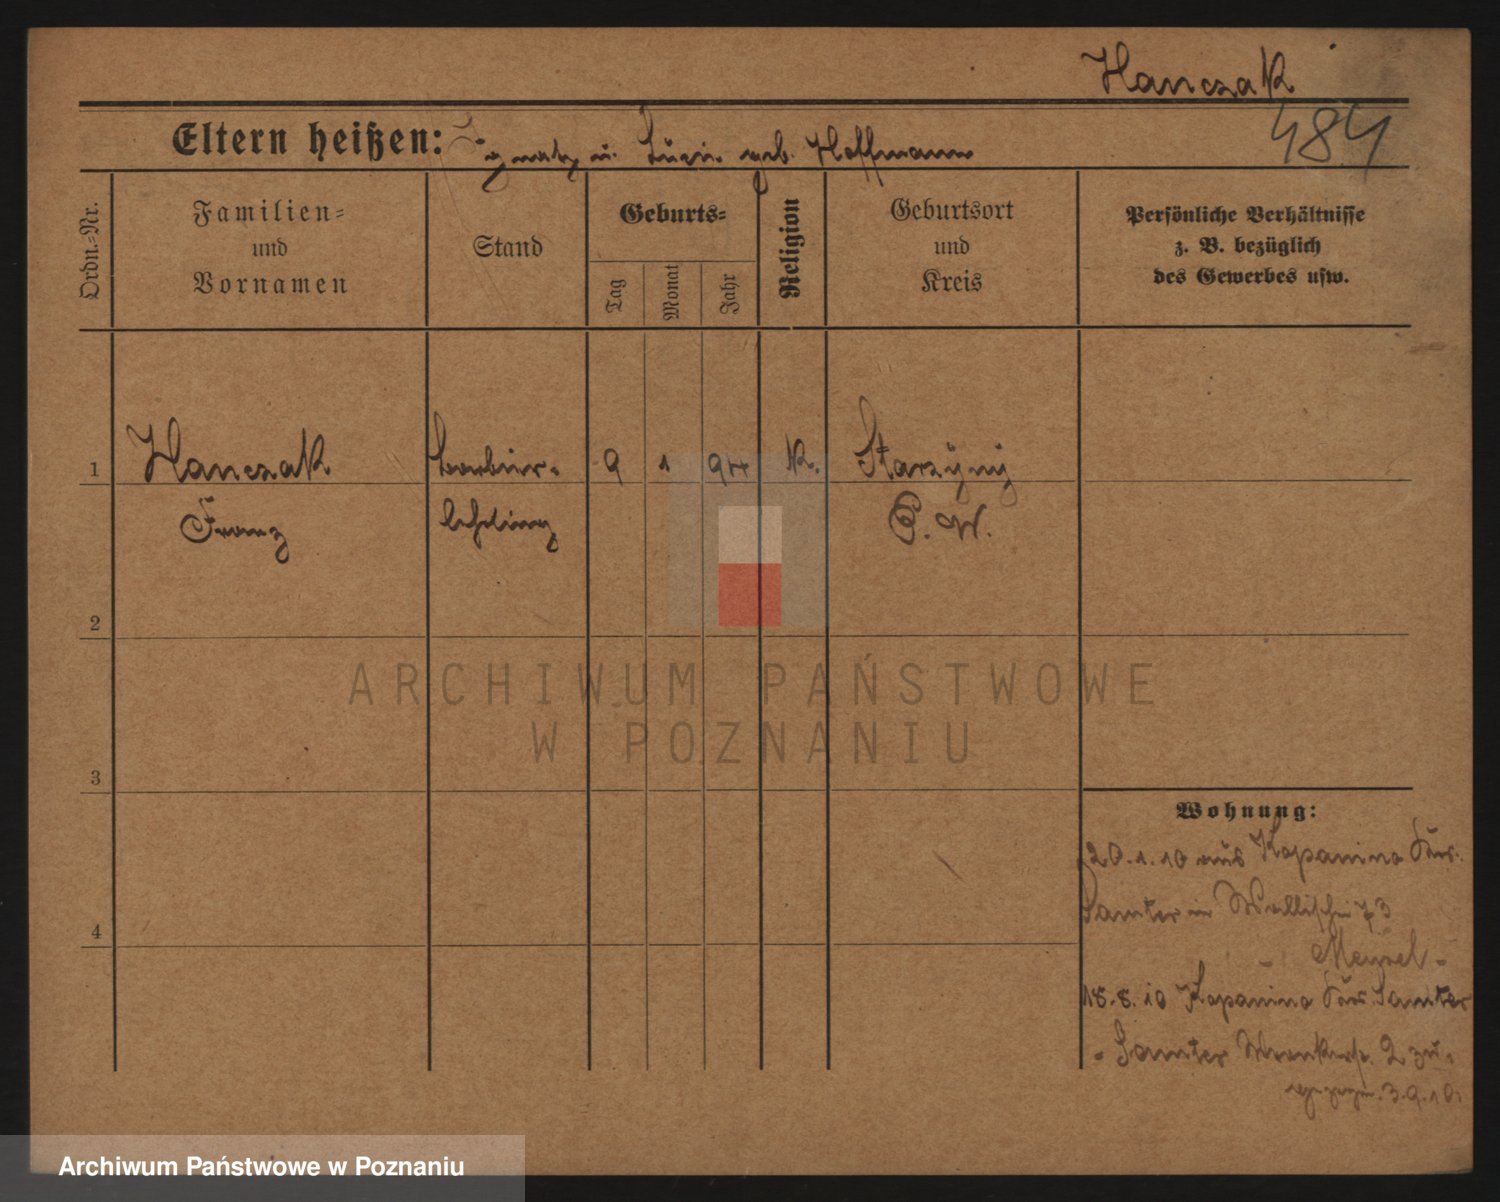 Hanczak
484
Eltern heißen: Ignatz u. Luzie geb. Hoffmann
Ordn.-Nr.
Familien-
und
Vornamen
Stand
Geburts-
Tag
Monat
Jahr
Religion
Geburtsort
und
Kreis
Persönliche Verhältnisse
z. B. bezüglich
des Gewerbes usw.
1
Hanczak
Franz
Barbier-
lehrling
9
1
94
K.
P. W.
2
3
4
Wohnung:
20.1.10 aus Kopanina Krs.
Samter in Wallischei 73
18.8.10 Kopanina Krs. Samter
Samter 2 zu-
3.9.10.
ARCHIWUM PAŃSTWOWE
W POZNANIU
Archiwum Państwowe w Poznaniu